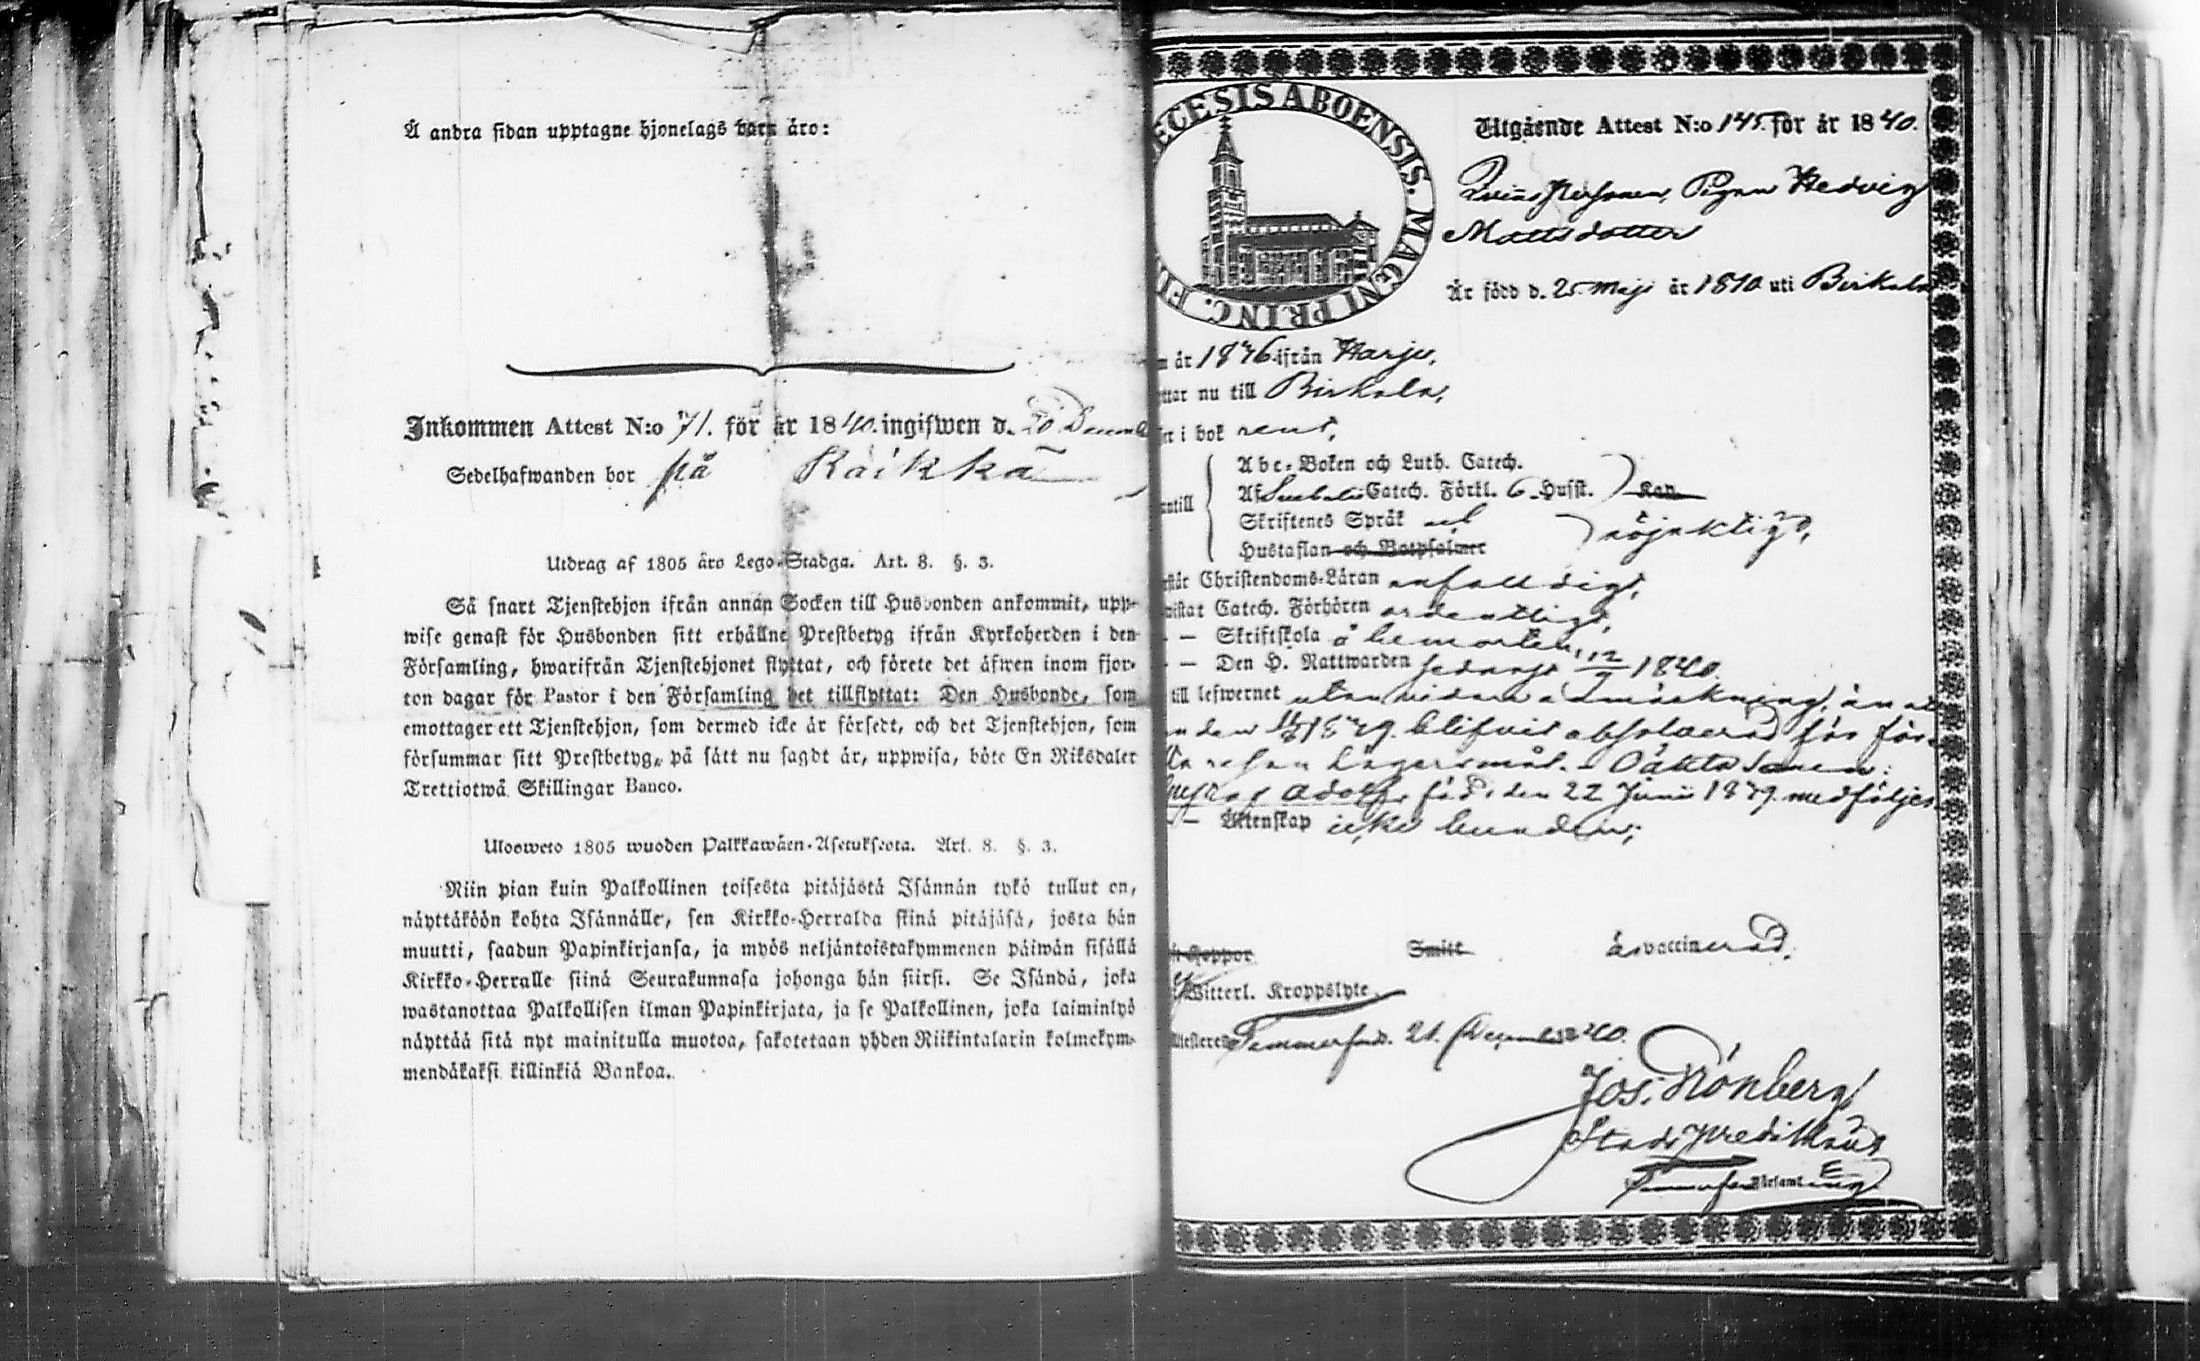 Å andra sidan upptagne hjonelags barn äro:
Inkommen Attest N:o 71. för år 1840. ingifwen d. 20 Decemb
Sedelhafwanden bor på Räikkä
Utdrag af 1805 års Lego-Stadga. Art. 8. §. 3.
Så snart Tjenstehjon ifrån annan Socken till Husbonden ankommit, upp-
wise genast för Husbonden sitt erhållne Prestbetyg ifrån Kyrkoherden i den
Församling, hwarifrån Tjenstehjonet flyttat, och förete det äfwen inom fjor-
ton dagar för Pastor i den Församling det tillflyttat: Den Husbonde, som
emottager ett Tjenstehjon, som dermed icke är försedt, och det Tjenstehjon, som
försummar sitt Prestbetyg, på sätt nu sagdt är, uppwisa, böte En Riksdaler
Trettiotwå Skillingar Banco.
Ulosweto 1805 wuoden Palkkawäen-Asetuksesta. Art. 8. §. 3.
Niin pian kuin Palkollinen toisesta pitäjästä Isännän tykö tullut on,
näyttäköön kohta Isännälle, sen Kirkko-Herralda siinä pitäjäsä, josta hän
muutti, saadun Papinkirjansa, ja myös neljäntoistakymmenen päiwän sisällä
Kirkko-Herralle siinä Seurakunnasa johonga hän siirsi. Se Isändä, joka
wastanottaa Palkollisen ilman Papinkirjata, ja se Palkollinen, joka laiminlyö
näyttää sitä nyt mainitulla muotoa, sakotetaan yhden Riikintalarin kolmekym-
mendäkaksi killinkiä Bankoa.
ECESIS ABOENSIS. MAGNI PRINC. FI
Utgående Attest N:o 145. för år 1840.
Qvinspersonen, Pigan Hedvig
Mattsdotter
Är född d. 25 Maji år 1810 uti Birkala
år 1836 ifrån Harju,
ttar nu till Birkala,
i bok rent,
Abc-Boken och Luth. Catech.
Af Svebelii Catech. Förkl. 6. Husst. Kan
antill
Skriftenes Språk
nöjaktigt,
Hustaflan och Botpsalmer
står Christendoms-Läran enfaldigt,
wistat Catech. Förhören ordentligt,
— Skriftskola å hemorten,
— Den H. Nattwarden sednast 1840.
till lefwernet utan vidare anmärkning, än at
den 1839. blifvit absolverad för för-
sta resan Lägersmål. Oäkta sonen:
Gustaf Adolf, född den 22 Junii 1839. medföljer
— Äktenskap icke bunden;
Koppor Smitt är vaccinerad.
Witterl. Kroppslyte
Attesteras Tammerfors. 21. December 1840.
Jos. Grönberg
Stads Predikant
Tammerfors Församling